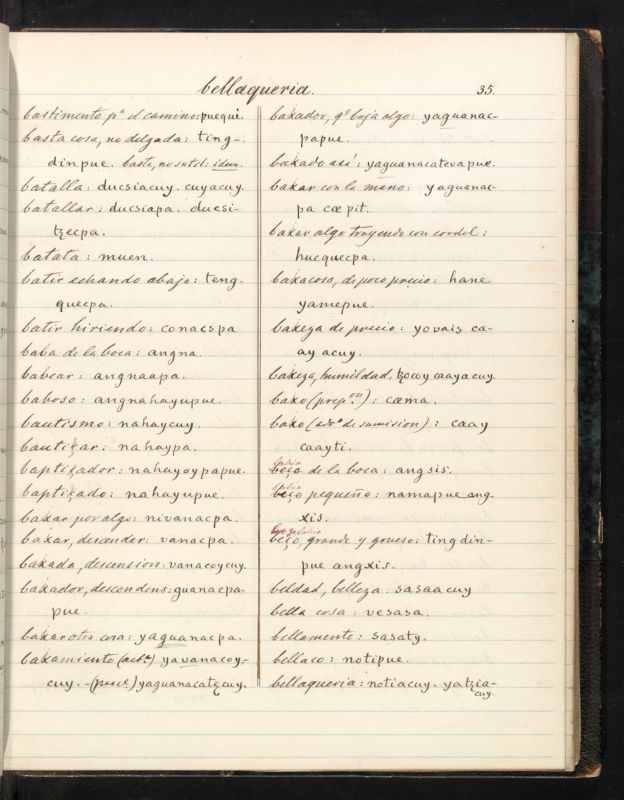 bellaqueria.
35.
bastimento pª el camino: puequi.
basta cosa, no delgada: ting-
dinpue. basta, no sutil: idem.
batalla: ducsiacuy. cuyacuy.
batallar: ducsiapa. ducsi-
tʒecpa.
batata: muen.
batir echando abajo: teng-
quecpa.
batir hiriendo: conacspa
baba de la boca: angna.
babear: angnaapa.
baboso: angnahayupue.
bautismo: nahaycuy.
bautiçar: nahaypa.
baptiçador: nahayoypapue.
baptiçado: nahayupue.
baxar por algo: nivanacpa.
baxar, descender: vanacpa.
baxada, descension: vanacoycuy.
baxador, descendens: guanacpa-
pue.
baxar otra cosa: yaguanacpa.
baxamiento (actº) yavanacoy-
cuy. - (pasº) yaguanacatȩcuy.
baxador, qᵉ baja algo: yaguanac-
papue.
baxado asi: yaguanacatevapue.
baxar con la mano: yaguanac-
pa cæpit.
baxar algo trayendo con cordel:
hucquecpa.
baxa cosa, de poco precio: hane
yamepue.
baxeza de precio: yovais ca-
ay acuy.
baxeza, humildad. tʒocoy caayacuy.
baxo (prepᵒⁿ): cæma.
baxo (advº de sumision): caay
caayti.
labio
beço de la boca: angsis.
labio
beço pequeño: namapue ang-
xis.
beço, grande y grueso: tingdin-
pue angxis.
beldad, belleza: sasaacuy
bella cosa: vesasa.
bellamente: sasaty.
bellaco: notipue.
bellaqueria: notiacuy. yatʒia-
cuy.